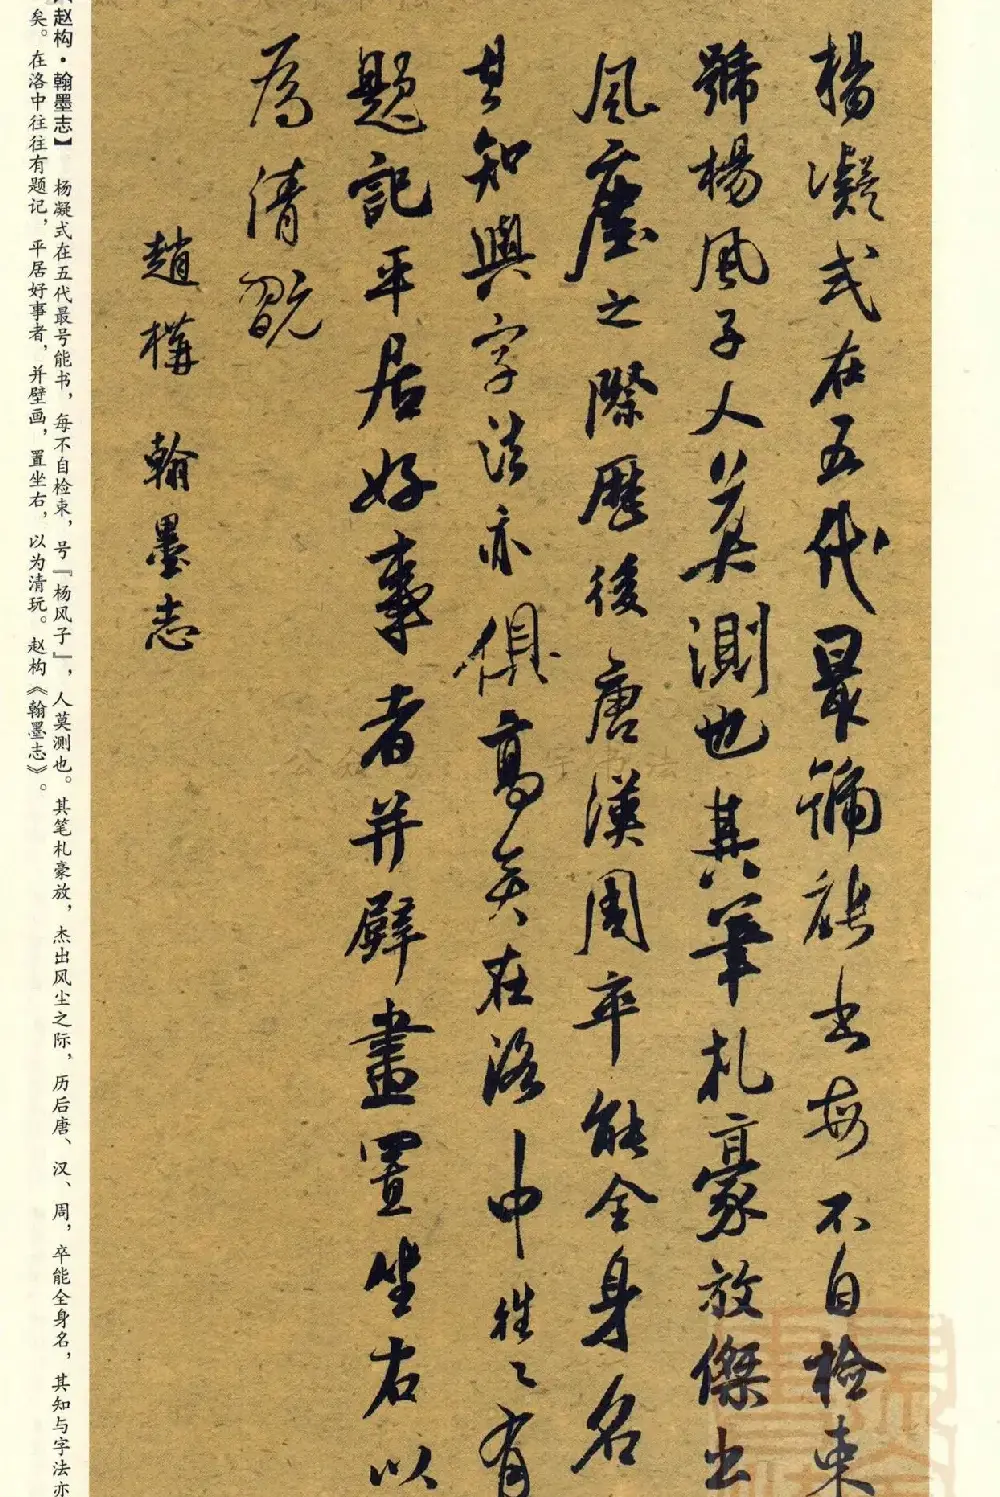 楊凝式在五代最號能書每不自檢束
號楊風子人莫測也其筆札豪放傑出
風塵之際歷後唐漢周卒能全身名
其知與字法亦俱高矣在洛中往々有
題記平居好事者并壁畫置坐右以
為清翫
趙構 翰墨志
【赵构·翰墨志】 杨凝式在五代最号能书，每不自检束，号『杨风子』，人莫测也。其笔札豪放，杰出风尘之际，历后唐、汉、周，卒能全身名，其知与字法亦
矣。在洛中往往有题记，平居好事者，并壁画，置坐右，以为清玩。赵构《翰墨志》。